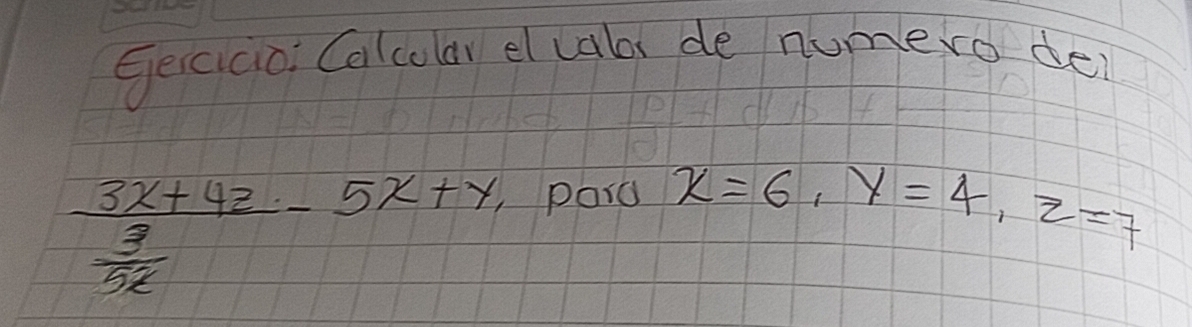 Ejercicio: Calcular el valor de numero de:
3x+4z - 5x+y, para x=6, y=4, z=7
3
5x